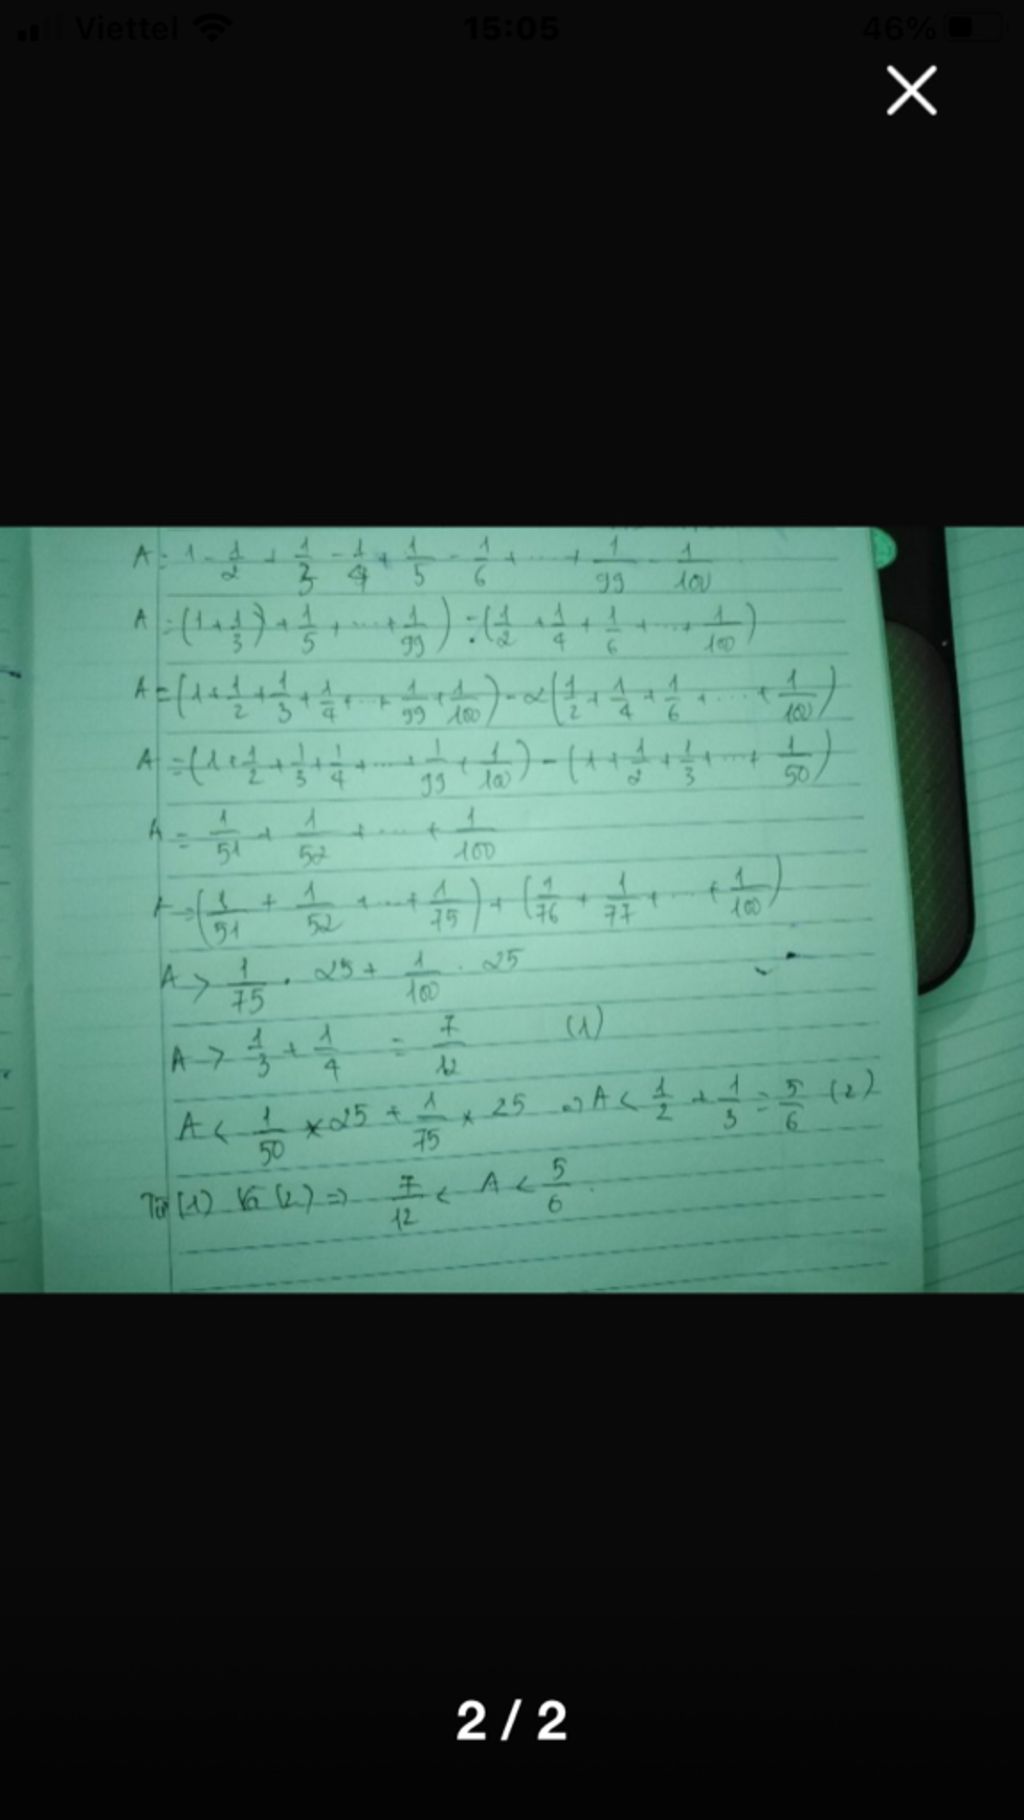 Viettel 15:05 46%
A = 1 - 1/2 + 1/3 - 1/4 + 1/5 - 1/6 + ... + 1/99 - 1/100
A = (1 + 1/3) + 1/5 + ... + 1/99) - (1/2 + 1/4 + 1/6 + ... + 1/100)
A = (1 + 1/2 + 1/3 + 1/4 + ... + 1/99 + 1/100) - 2(1/2 + 1/4 + 1/6 + ... + 1/100)
A = (1 + 1/2 + 1/3 + 1/4 + ... + 1/99 + 1/100) - (1 + 1/2 + 1/3 + ... + 1/50)
A = 1/51 + 1/52 + ... + 1/100
A = (1/51 + 1/52 + ... + 1/75) + (1/76 + 1/77 + ... + 1/100)
A > 1/75 . 25 + 1/100 . 25
A > 1/3 + 1/4 = 7/12 (1)
A < 1/50 × 25 + 1/75 × 25 => A < 1/2 + 1/3 = 5/6 (2)
Từ (1) Và (2) => 7/12 < A < 5/6.
2 / 2